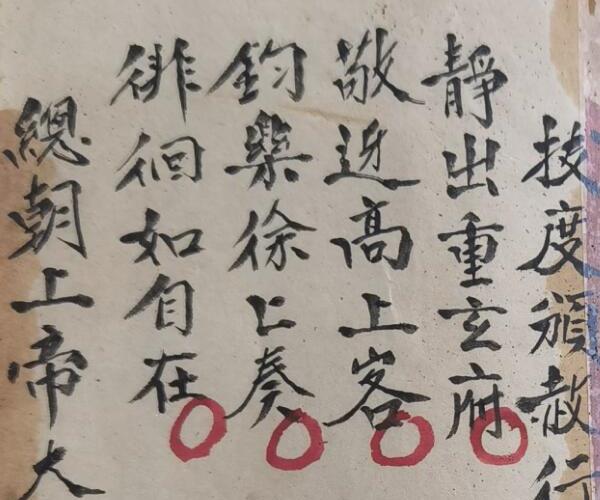 技度頒赦行
靜出重玄府
敬迓高上客
鈞樂徐上奏
徘徊如自在
總朝上帝大